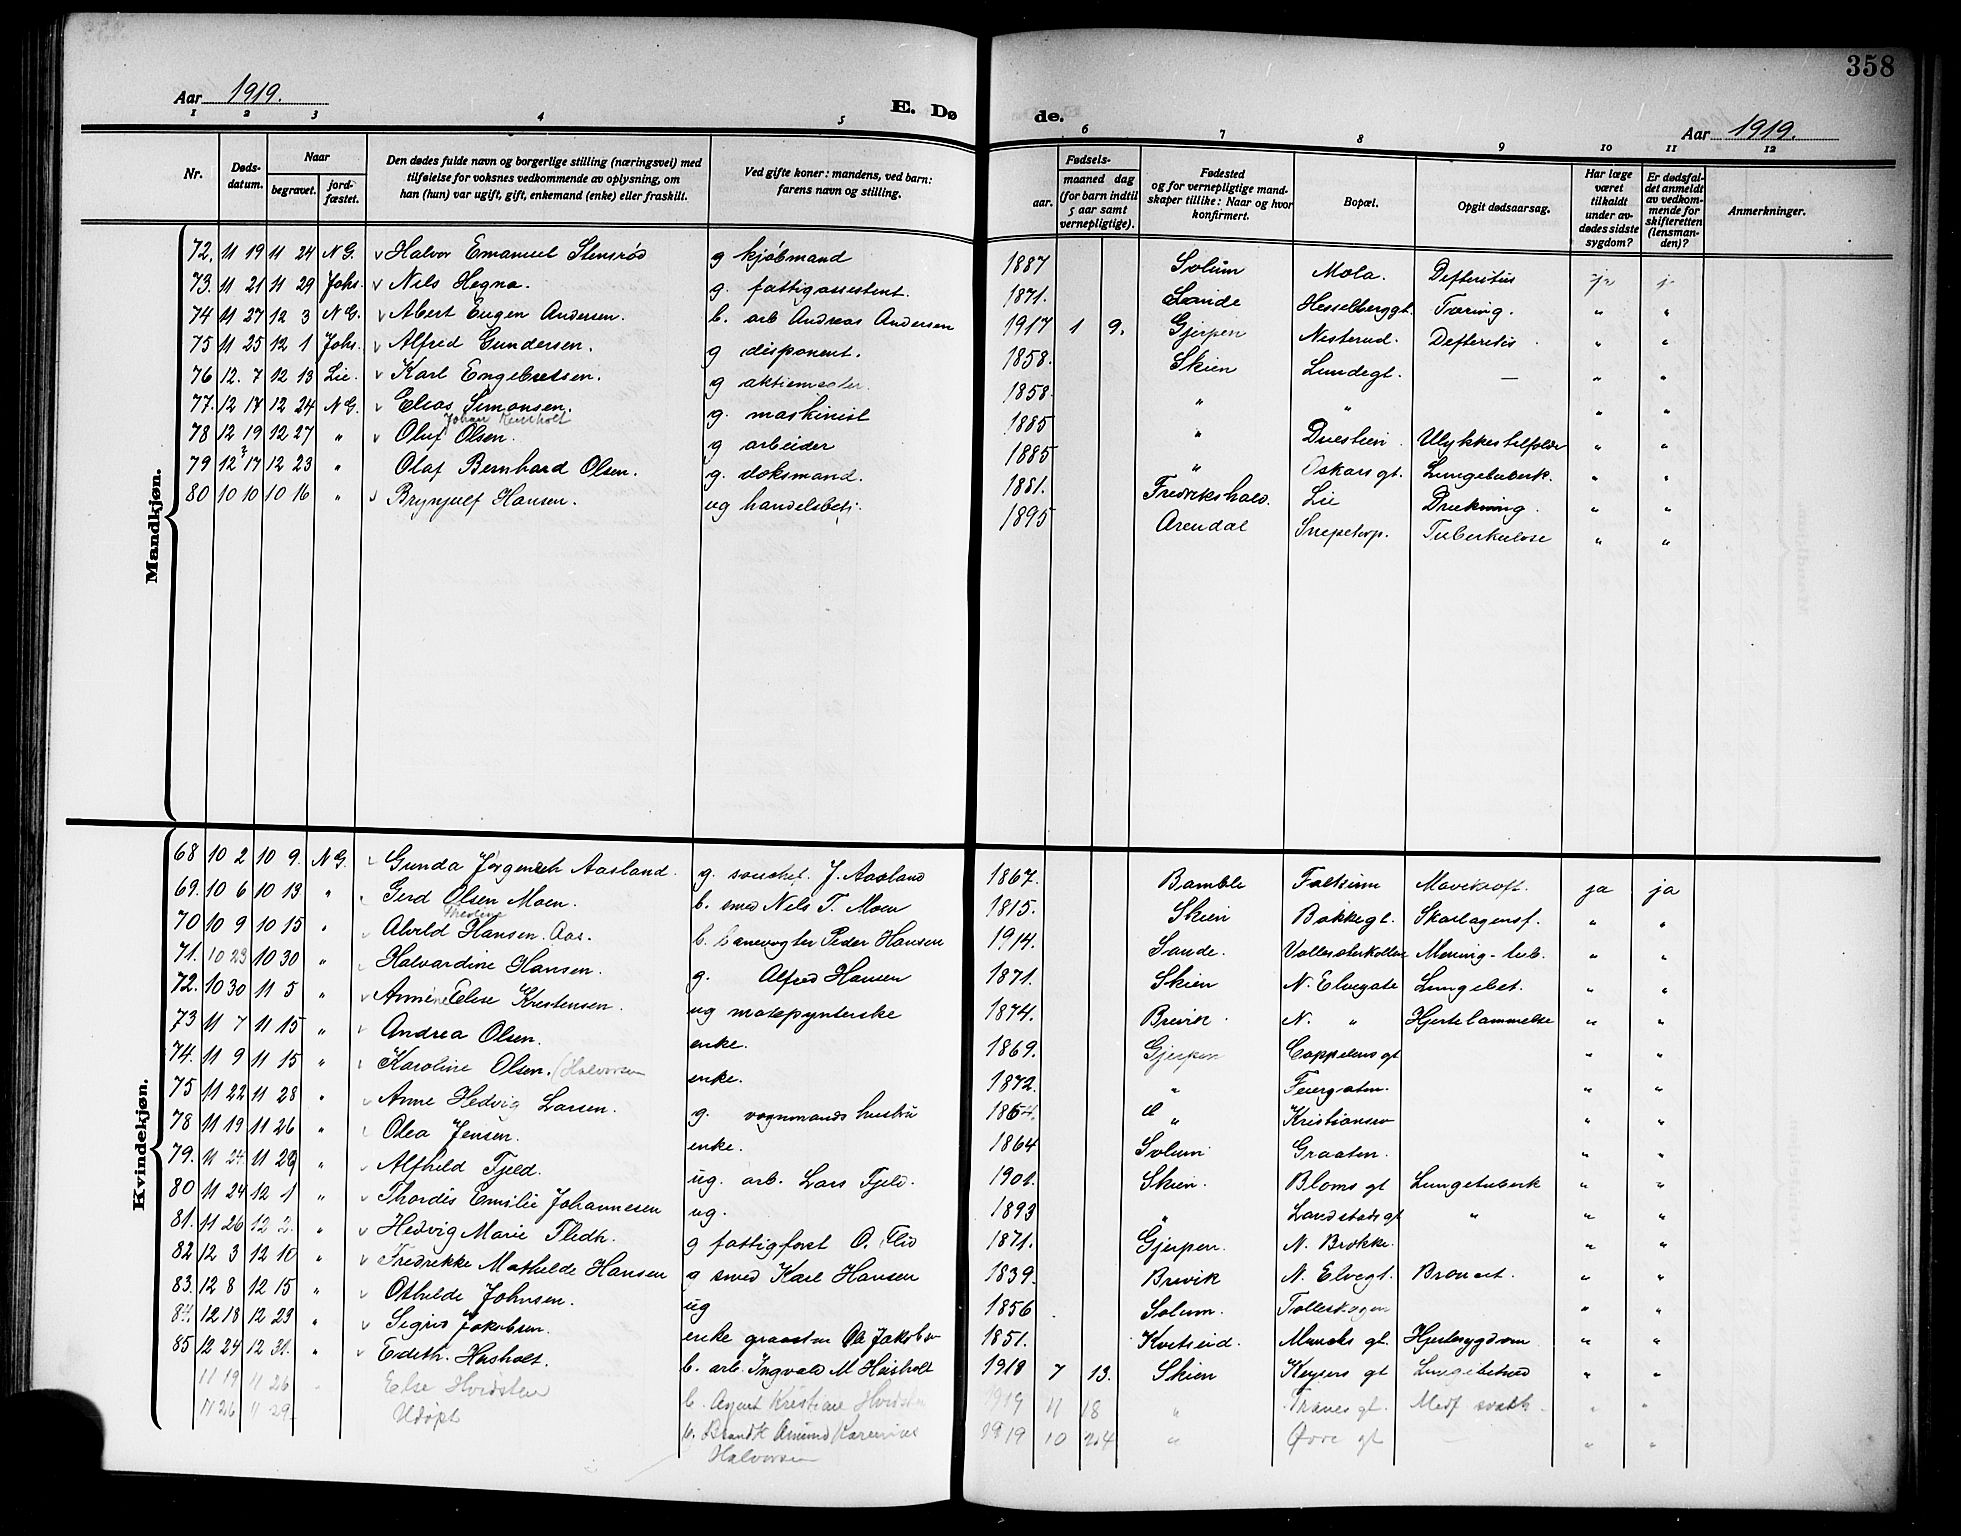 358
Aar 1919.
E. Døde.
Aar 1919.
1 2 3 4 5 6 7 8 9 10 11 12
Nr.
Døds-datum.
Naar
begravet.
jord-fæstet.
Den dødes fulde navn og borgerlige stilling (næringsvei) med
tilføielse for voksnes vedkommende av oplysning, om
han (hun) var ugift, gift, enkemand (enke) eller fraskilt.
Ved gifte koner: mandens, ved barn:
farens navn og stilling.
Fødsels-
aar. maaned dag
(for barn indtil
5 aar samt
vernepligtige).
Fødested
og for vernepligtige mand-
skaper tillike: Naar og hvor
konfirmert.
Bopæl.
Opgit dødsaarsag.
Har læge
været
tilkaldt
under av-
dødes sidste
sygdom?
Er dødsfal-
det anmeldt
av vedkom-
mende for
skifteretten
(lensman-
den)?
Anmerkninger.
Mandkjøn.
72. 11 19 11 24 N G. Halvor Emanuel Stensrød g kjøbmand 1887 Solum Mæla. Defteritis ja j.
73. 11 21 11 29 Johs. Nils Hegna. g. fattigassestent. 1871. Lunde Hesselberggt. Tæring. " "
74 11 27 12 3 N G. Abert Eugen Andersen. b. arb Andreas Andersen 1917 1 9. Gjerpen Nesterud. Defteritis " "
75 11 25 12 1 Johs. Alfred Gundersen. g disponent. 1858. Skien Lundegt. — " "
76 12. 7 12 13 Lie. Karl Engebretsen. g aktiemægler. 1858. " " " "
77. 12 17 12 24 N G. Elias Simonsen. g. maskinist 1885 " Duestien Ulykkestilfælde " "
78 12 19 12 27 " Oluf Johan Olsen. g arbeider 1885 " Oskarsgt. Lungetuberk. " "
79 12 17 12 23 " Olaf Bernhard Olsen. g. doksmand. 1881. Fredrikshald. Lie Drukning. " "
80 10 10 10 16 " Brynjulf Hansen. ug handelsbetj. 1895 Arendal Snipetorp. Tuberkulose " "
Kvindekjøn.
68 10 2 10 9. N G. Gunda Jørgensen Aasland. g. J. Aasland 1867. Bamble Falkum ja ja
69. 10 6 10 13 " Gerd Olsen Moen. b. smed Nels T. Moen 1815. Skien Bakkegt. Skarlagensf. " "
70 10 9 10 15 " Alvild Hansen. Aas. b. banevogter Peder Hansen 1914. Sande. Mening-tub. " "
71. 10 23 10 30 " Halvardine Hansen. g. Alfred Hansen 1871. Skien N. Elvegate Lungebet. " "
72. 10 30 11 5 " Anne Else Kristensen. ug motepynterske 1874. Brevik N. " Hjertelammelse " "
73 11 7 11 15 " Andrea Olsen. enke. 1869. Gjerpen Cappelens gt " "
74. 11 9 11 15 " Karoline Olsen. (Halvorsen enke. 1872. " Feiergaten. " "
75 11 22 11 28 " Anne Hedvig Larsen. g. vognmands hustru 1864. " Kristiansv " "
78 11 19 11 26 " Olea Jensen. enke. 1864 Solum Graaten. " "
79. 11 24. 11 29 " Alfhild Fjeld. ug. arb. Lars Fjeld. 1901. Skien. Bloms gt Lungetuberk " "
80 11 24 12 1 " Thordis Emilie Johannesen ug. 1893 " Landstadsgt " " "
81. 11 26 12 2. " Hedvig Marie Flidh. g fattigforst O. Flid 1871. Gjerpen. N. Brekke. " "
82 12 3 12 10 " Fredrikke Mathilde Hansen g smed Karl Hansen 1839. Brevik N. Elvegt. " "
83. 12 8 12 15 " Othilde Johnsen. ug 1856 Solum. Follestkogen " "
84. 12 18 12 23 " Sigrid Jakobsen. enke Ole Jakobsen 1851. Kviteseid. Munchs gt. Hjertesygdom " "
85 12 24 12 31. " Edith. Husholt. b. arb. Ingvald M Husholt 1918 7 13. Skien Keysers gt Lungebetend " "
11 19 11 26 " Else Hvidsten b. Agent Kristian Hvidsten 1919 11 18 " Medf svakh. " "
11 26 11 29. Udøpt b. Amund Halvorsen 1919 10 24 " Øvre gt — " "